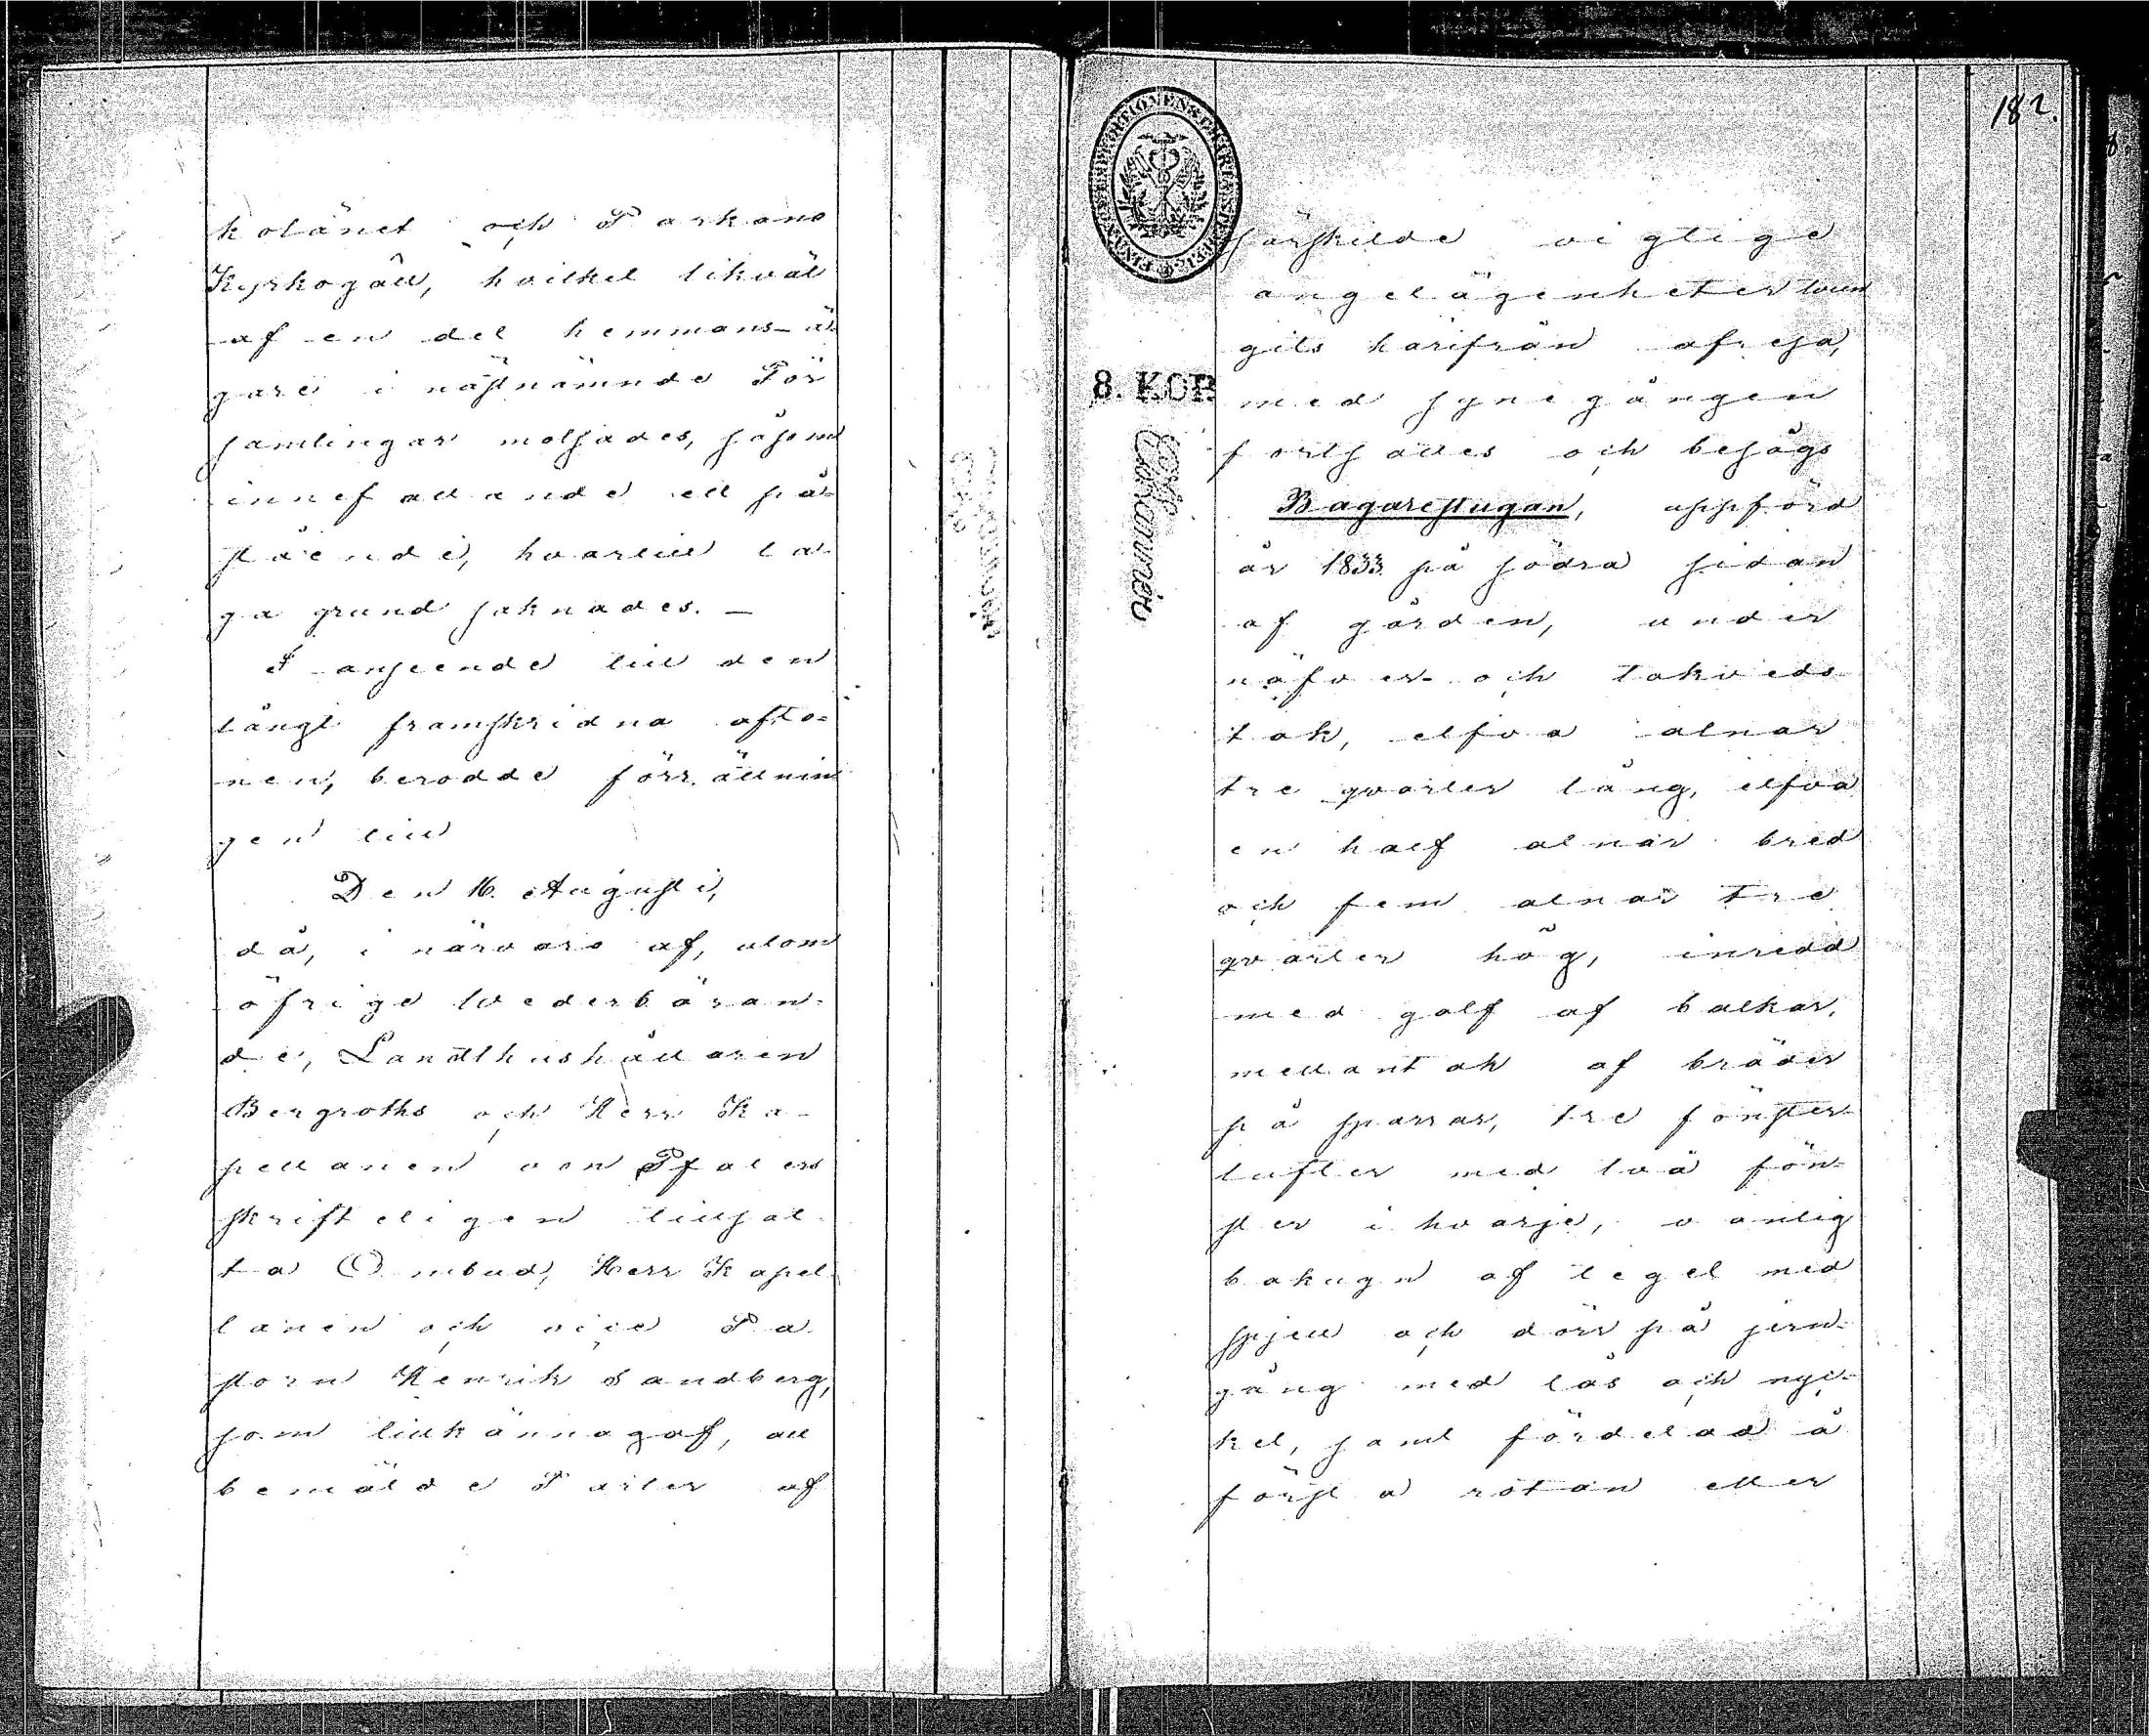 kolänet och Parkano
Kyrkogäll, hvilket likväl
af en del hemmans-ä-
gare i näst nämnde För
samlingar motsades, såsom
innefattande ett på-
stående, hvartill la-
ga grund saknades. —
I anseende till den
långt framskridna afto-
nen, berodde förrättnin
gen till
Den 16. Augusti,
då, i närvaro af, utom
öfrige wederböran-
de, Landthushållaren
Bergroths och Herr Ka-
pellanen von Pfalers
skrifteligen tillsat-
ta Ombud, Herr Kapel-
lanen och vice Pa-
storn Henrik Sandberg,
som tillkännagaf, att
bemälde Parter af
182.
särskilde vigtige
angelägenheter tvun
gits härifrån afresa,
med synegången
fortsattes och besågs
8. KOP.
Bagarestugan, uppförd
år 1833 på södra sidan
af gården, under
näfver- och takveds-
tak, elfva alnar
tre qvarter lång, elfva
en half alnar bred
och fem alnar tre
qvarter hög, inredd
med golf af balkar,
mellantak af bräder
på sparrar, tre fönster-
lufter med två fön-
ster i hvarje, vanlig
bakugn af tegel med
spjell och dörr på jern-
gång med lås och nyc-
kel, samt fördelad å
första rotan eller